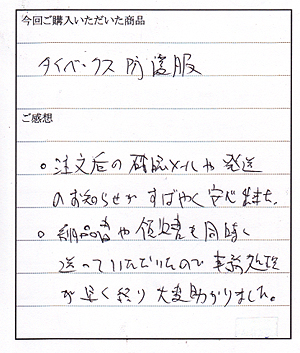 今回ご購入いただいた商品
タイベックス 防護服
ご感想
○ 注文后の確認メールや発送
のお知らせがすばやく安心出来た。
○ 納品書や領収書も同時に
送っていただいたので事務処理
が早く終り大変助かりました。